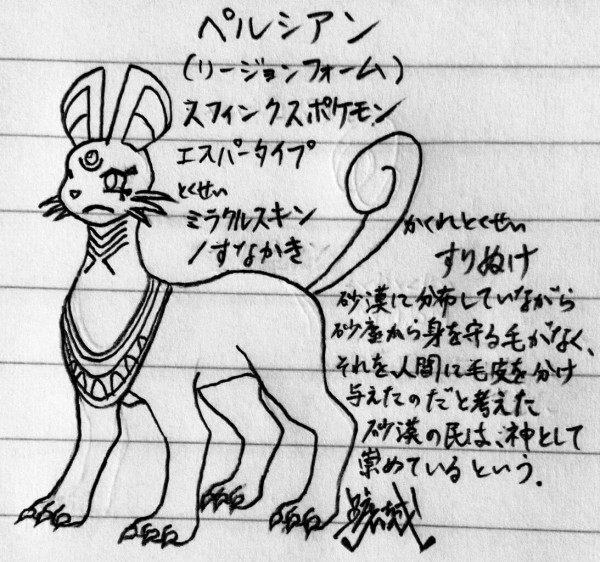 ペルシアン
(リージョンフォーム)
スフィンクスポケモン
エスパータイプ
とくせい
ミラクルスキン
/すなかき
かくれとくせい
すりぬけ
砂漠に分布していながら
砂塵から身を守る毛がなく、
それを、人間に毛皮を分け
与えたのだと考えた
砂漠の民は、神として
崇めているという。